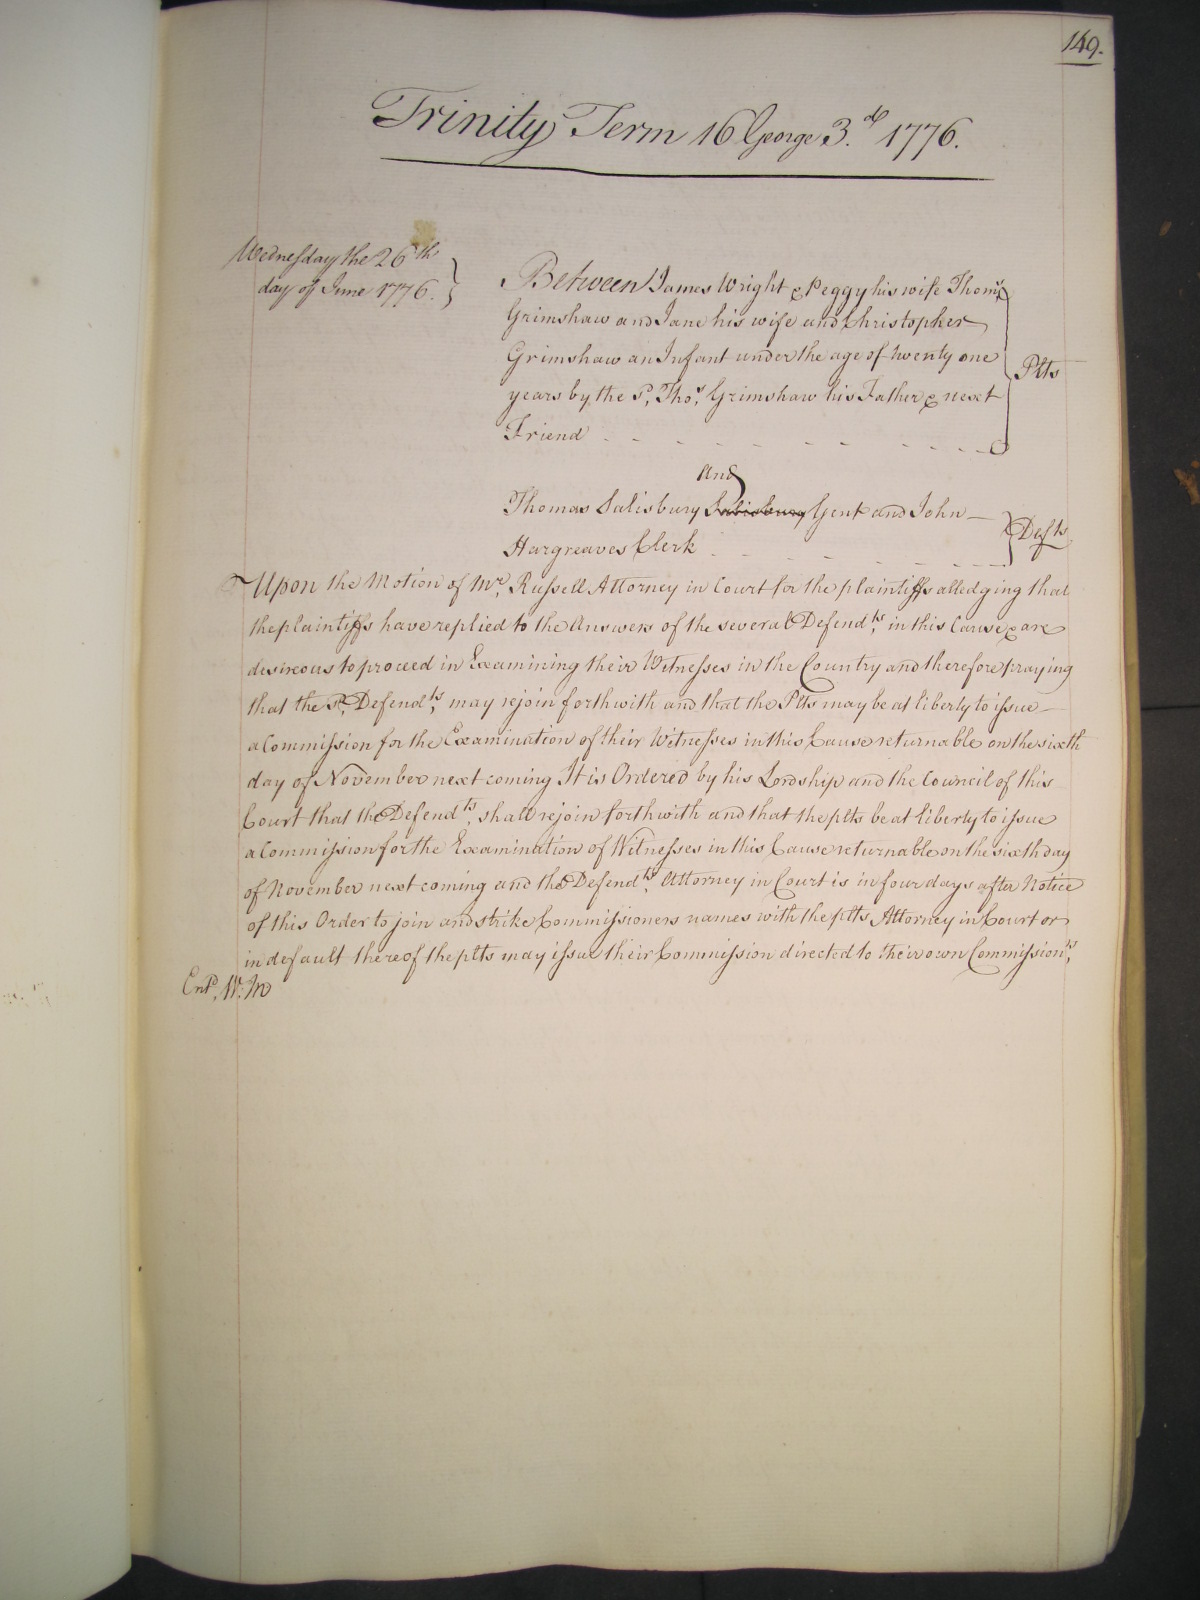 149.
Trinity Term 16 George 3.d 1776.
Wednesday the 26th
day of June 1776.
Between James Wright & Peggy his wife Thoms
Grimshaw and Jane his wife and Christopher
Grimshaw an Infant under the age of twenty one
years by the sd. Thos. Grimshaw his Father & next
Friend
Plts
And
Thomas Salisbury Salisbury Gent and John
Hargreaves Clerk
Defts
Upon the Motion of Mr. Russell Attorney in Court for the plaintiffs alledging that
the plaintiffs have replied to the Answers of the several Defendts. in this Cause & are
desireous to proceed in Examining their Witnesses in the Country and therefore praying
that the sd. Defendts. may rejoin forthwith and that the Plts may be at liberty to issue
a Commission for the Examination of their Witnesses in this Cause returnable on the sixth
day of November next coming It is Ordered by his Lordship and the Council of this
Court that the Defendts. shall rejoin forthwith and that the plts be at liberty to issue
a Commission for the Examination of Witnesses in this Cause returnable on the sixth day
of November next coming and the Defendts. Attorney in Court is in four days after Notice
of this Order to join and strike Commissioners names with the plts Attorney in Court or
in default thereof the plts may issue their Commission directed to their own Commissionrs.
Entd. W: M